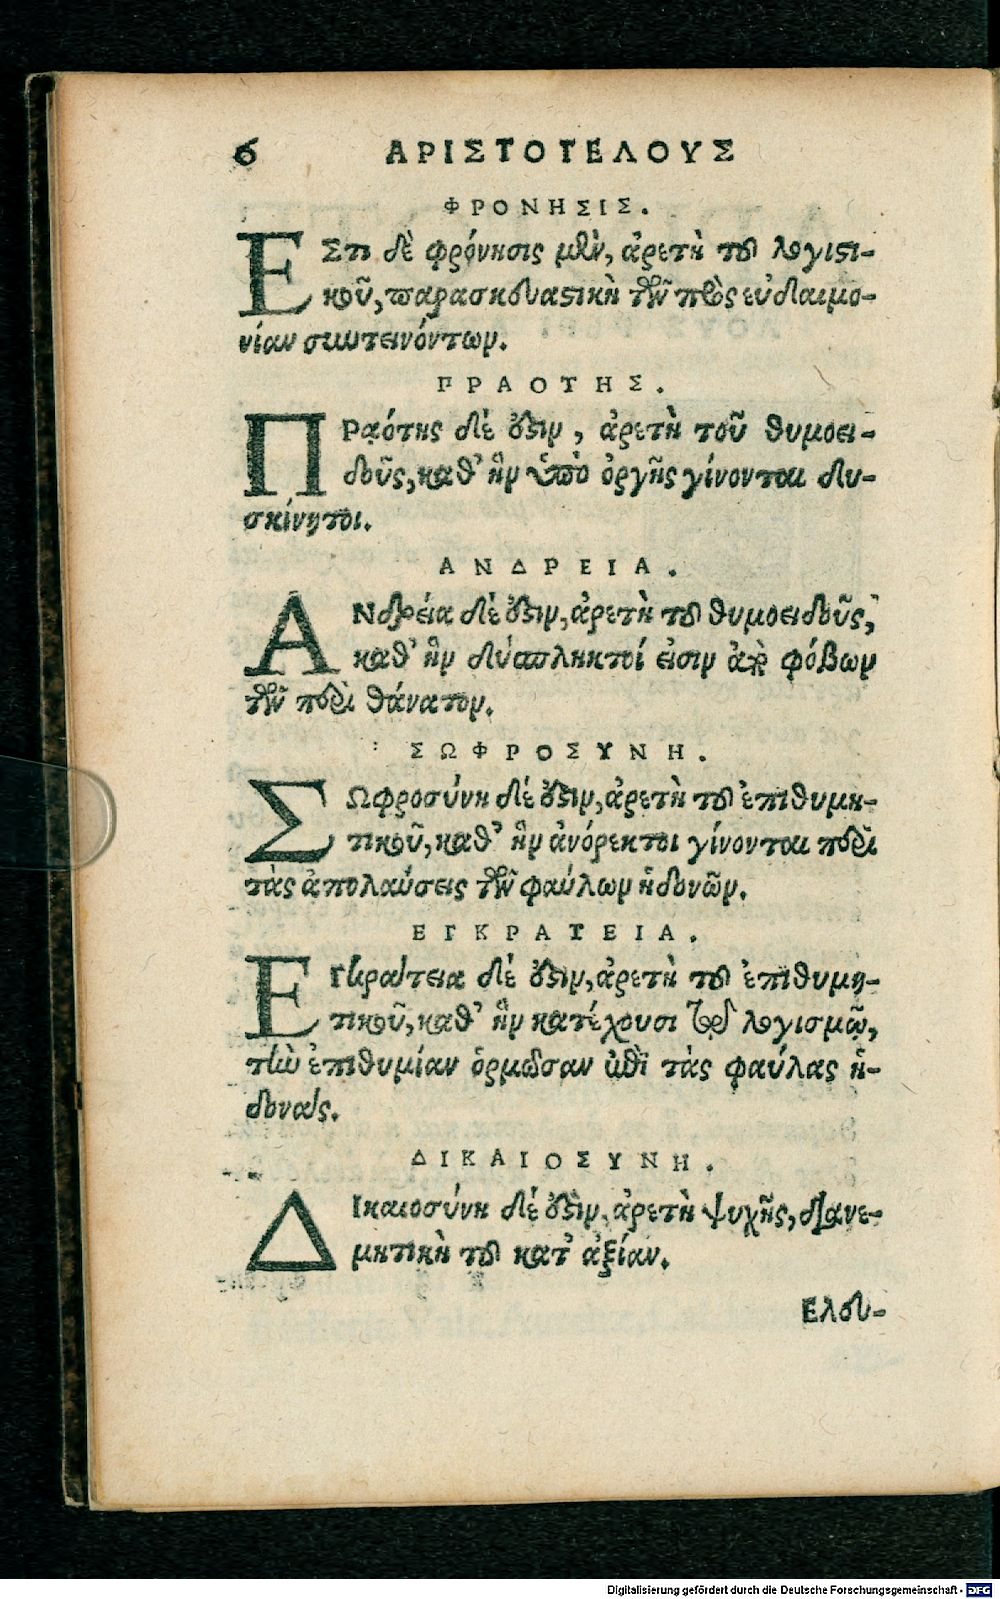 6 ΑΡΙΣΤΟΤΕΛΟΥΣ
ΦΡΟΝΗΣΙΣ.
ΕΣτι δὲ φρόνησις μὲν, ἀρετὴ τοῦ λογιστι-
κοῦ, παρασκευαστικὴ τῶν πρὸς εὐδαιμο-
νίαν συντεινόντων.
ΠΡΑΟΤΗΣ.
ΠΡαότης δέ ἐστιν, ἀρετὴ τοῦ θυμοει-
δοῦς, καθ' ἣν ὑπὸ ὀργῆς γίνονται δυ-
σκίνητοι.
ΑΝΔΡΕΙΑ.
ΑΝδρεία δέ ἐστιν, ἀρετὴ τοῦ θυμοειδοῦς,
καθ' ἣν δύσπληκτοί εἰσιν ὑπὸ φόβων
τῶν περὶ θάνατον.
ΣΩΦΡΟΣΥΝΗ.
ΣΩφροσύνη δέ ἐστιν, ἀρετὴ τοῦ ἐπιθυμη-
τικοῦ, καθ' ἣν ἀνόρεκτοι γίνονται περὶ
τὰς ἀπολαύσεις τῶν φαύλων ἡδονῶν.
ΕΓΚΡΑΤΕΙΑ.
ΕΓκράτεια δέ ἐστιν, ἀρετὴ τοῦ ἐπιθυμη-
τικοῦ, καθ' ἣν κατέχουσι τῷ λογισμῷ,
τὴν ἐπιθυμίαν ὁρμῶσαν ἐπὶ τὰς φαύλας ἡ-
δονάς.
ΔΙΚΑΙΟΣΥΝΗ.
ΔΙκαιοσύνη δέ ἐστιν, ἀρετὴ ψυχῆς, διανε-
μητικὴ τοῦ κατ' ἀξίαν.
Ελευ-
Digitalisierung gefördert durch die Deutsche Forschungsgemeinschaft - DFG